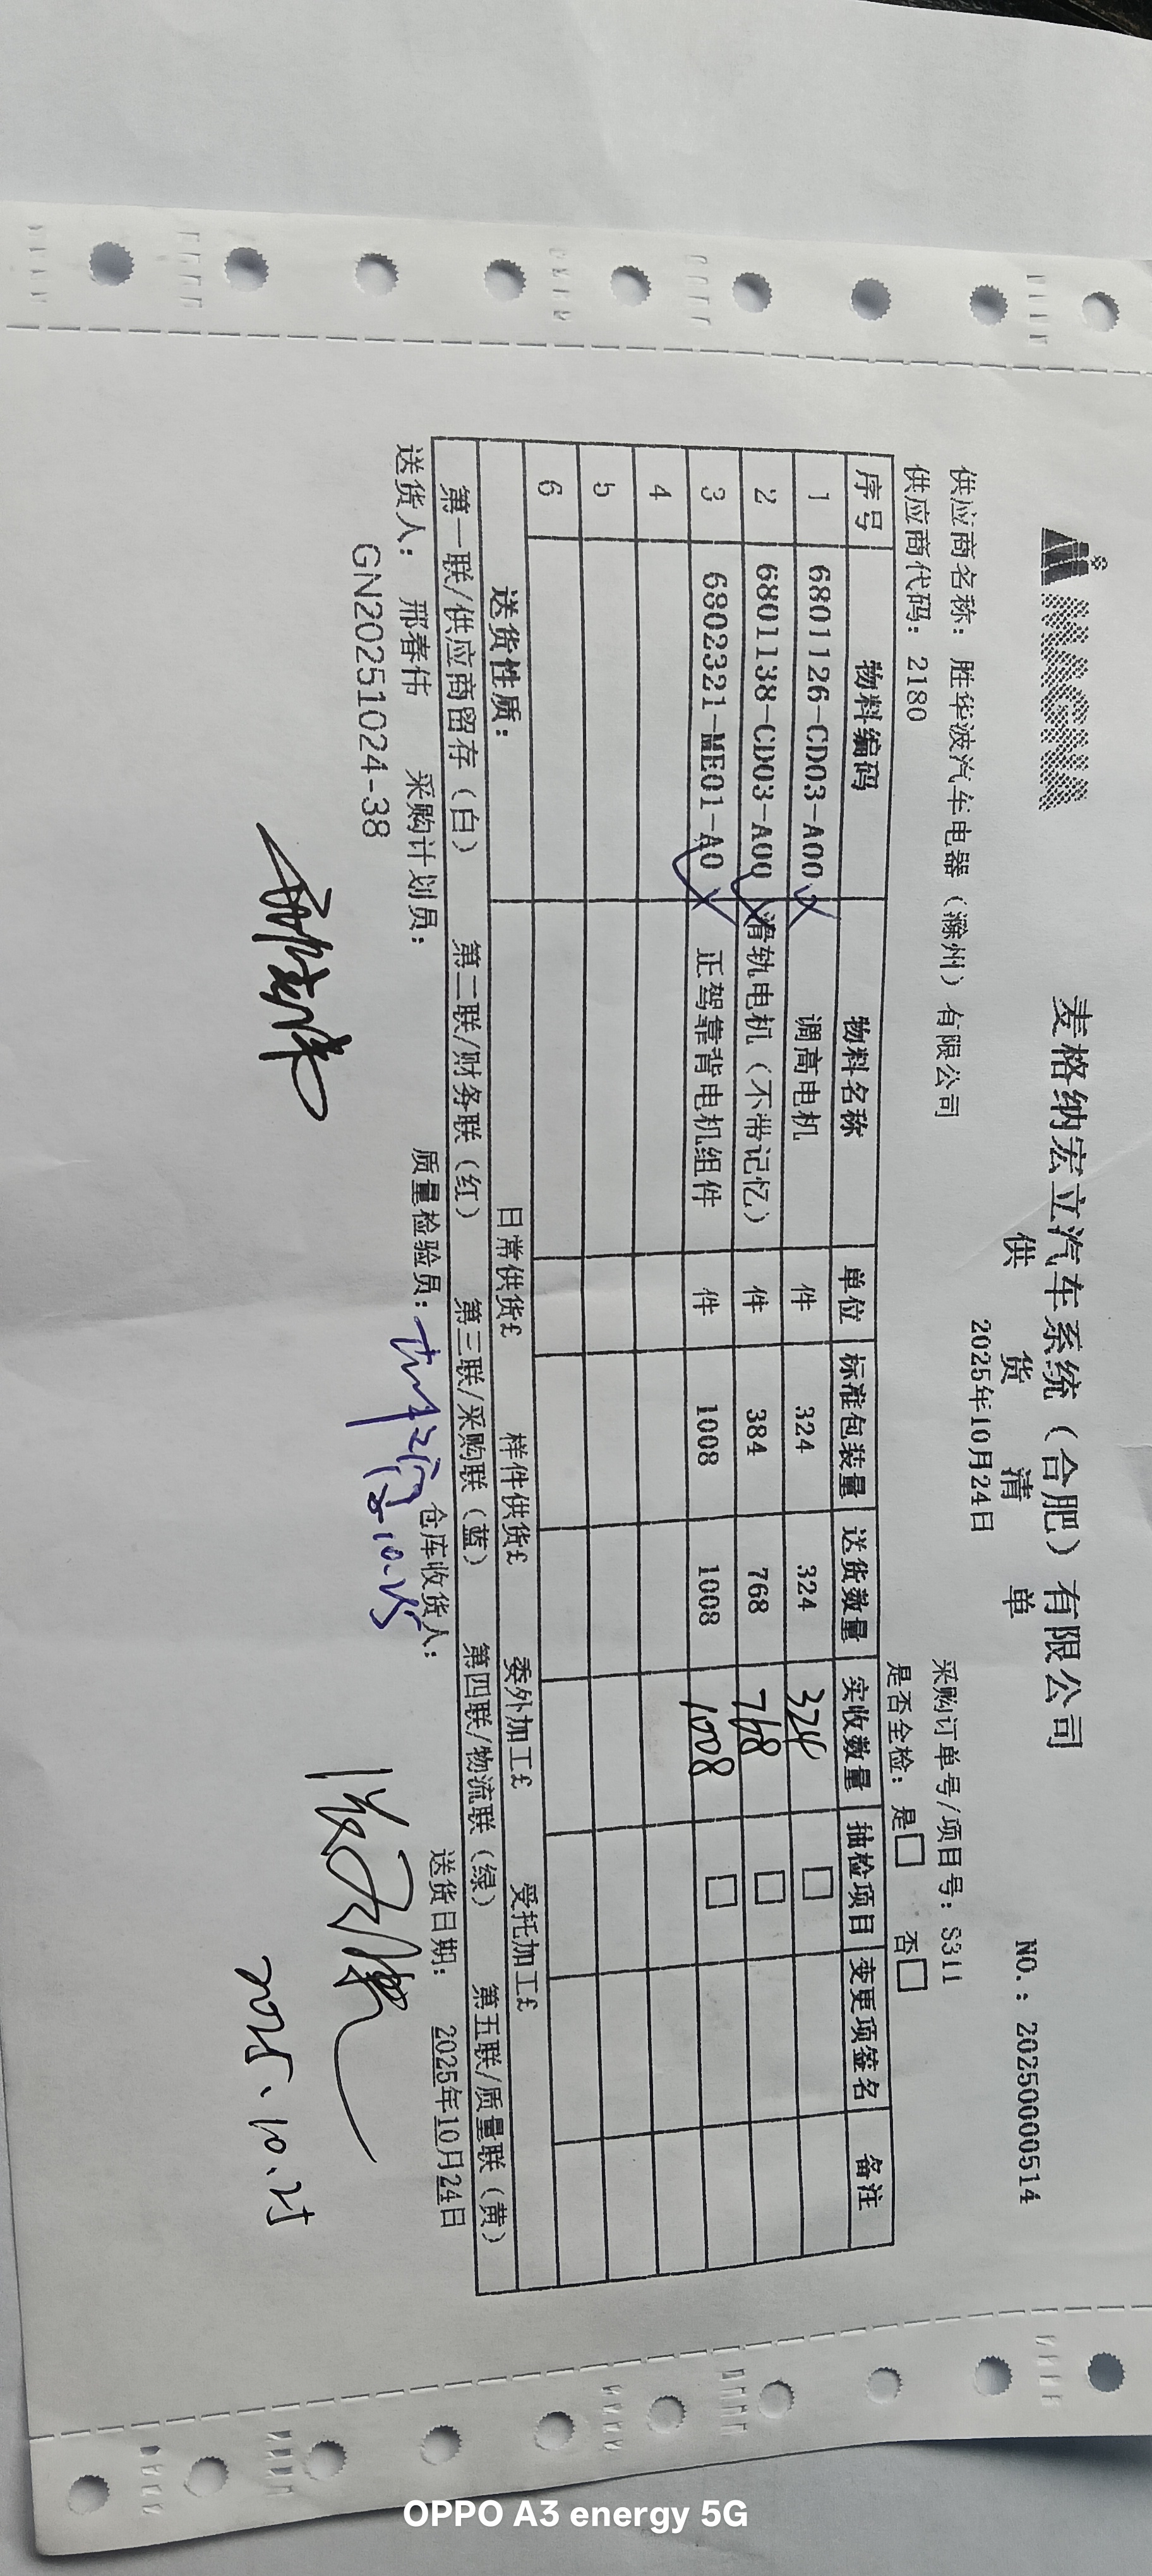 麦格纳宏立汽车系统（合肥）有限公司
供 货 清 单
NO.: 20250000514
2025年10月24日
供应商名称: 胜华波汽车电器（滁州）有限公司
采购订单号/项目号: S311
供应商代码: 2180
是否全检: 是□ 否□
序号 物料编码 物料名称 单位 标准包装量 送货数量 实收数量 抽检项目 变更项签名 备注
1 6801126-CD03-A00 调高电机 件 324 324 324 □
2 6801138-CD03-A00 滑轨电机（不带记忆） 件 384 768 768 □
3 6802321-ME01-A0 正驾靠背电机组件 件 1008 1008 1008 □
4
5
6
送货性质: 日常供货£ 样件供货£ 委外加工£ 受托加工£
第一联/供应商留存（白） 第二联/财务联（红） 第三联/采购联（蓝） 第四联/物流联（绿） 第五联/质量联（黄）
送货人: 邢春伟 采购计划员: 质量检验员: 仓库收货人: 送货日期: 2025年10月24日
10.25
GN20251024-38
2025.10.25
OPPO A3 energy 5G